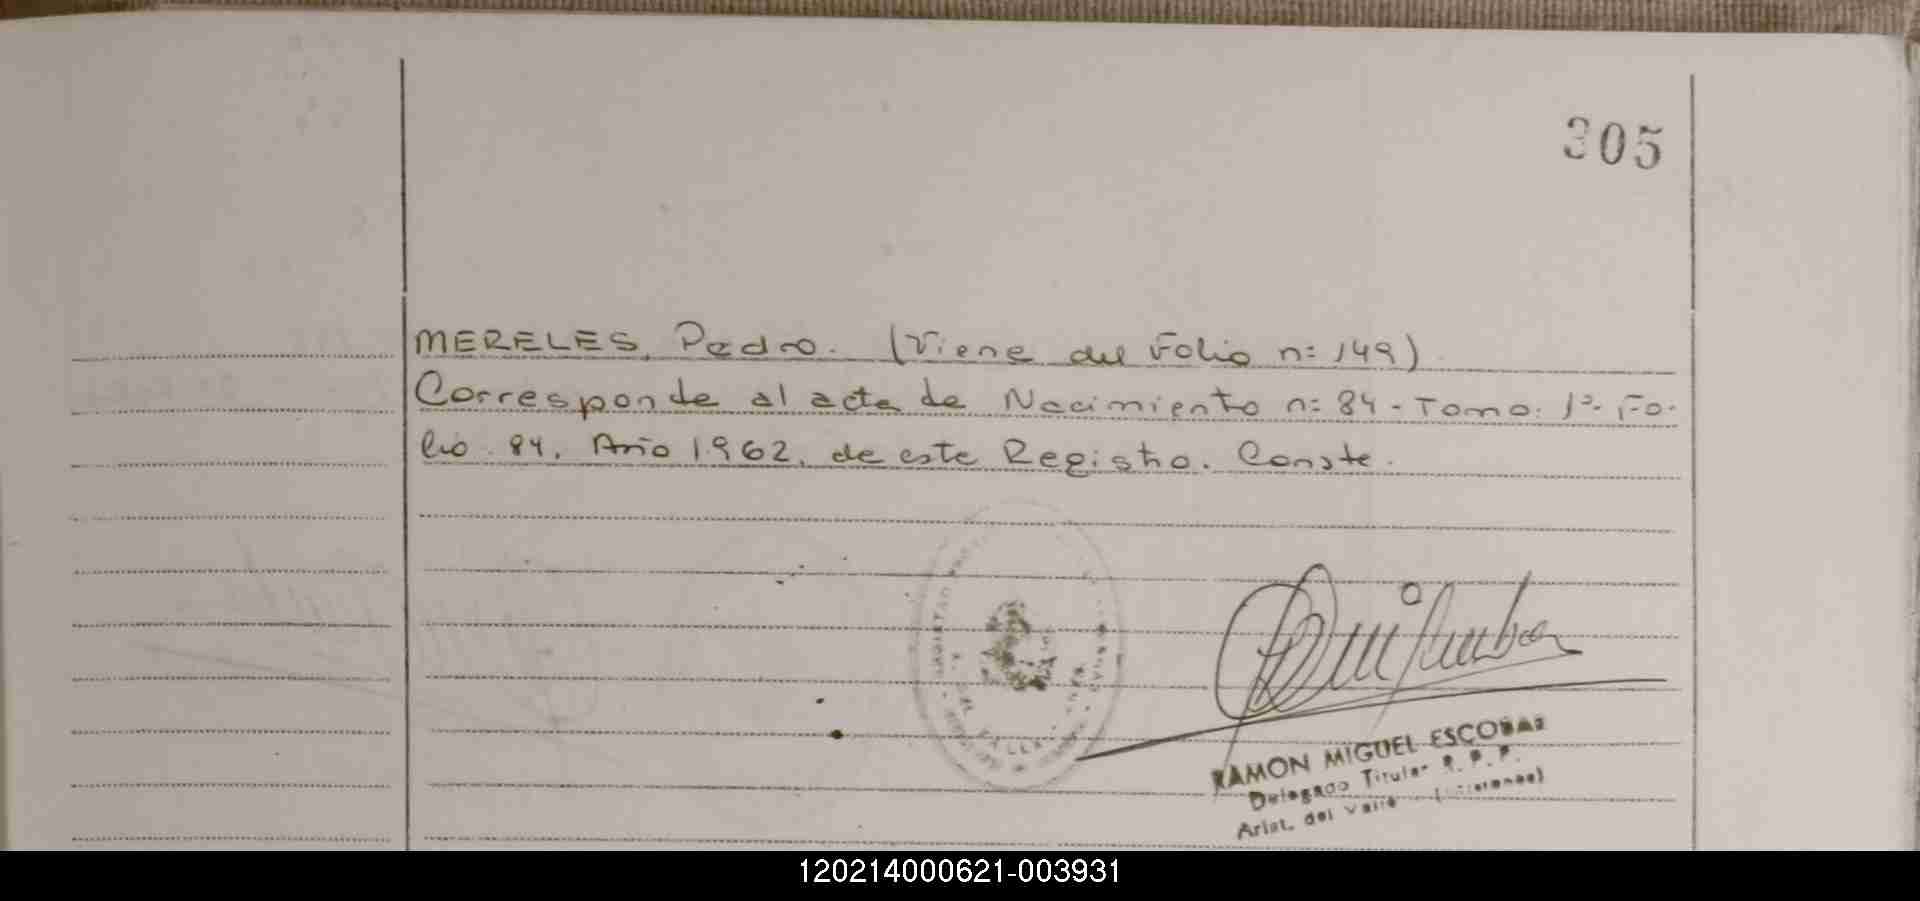 305
MERELES, Pedro. (Viene del Folio n: 149)
Corresponde al acta de Nacimiento n: 84 - Tomo: 1º- Fo-
lio 84, Año 1962, de este Registro. Conste.
RAMON MIGUEL ESCOBAR
Delegado Titular R. P. P.
Arist. del Valle (Misiones)
120214000621-003931